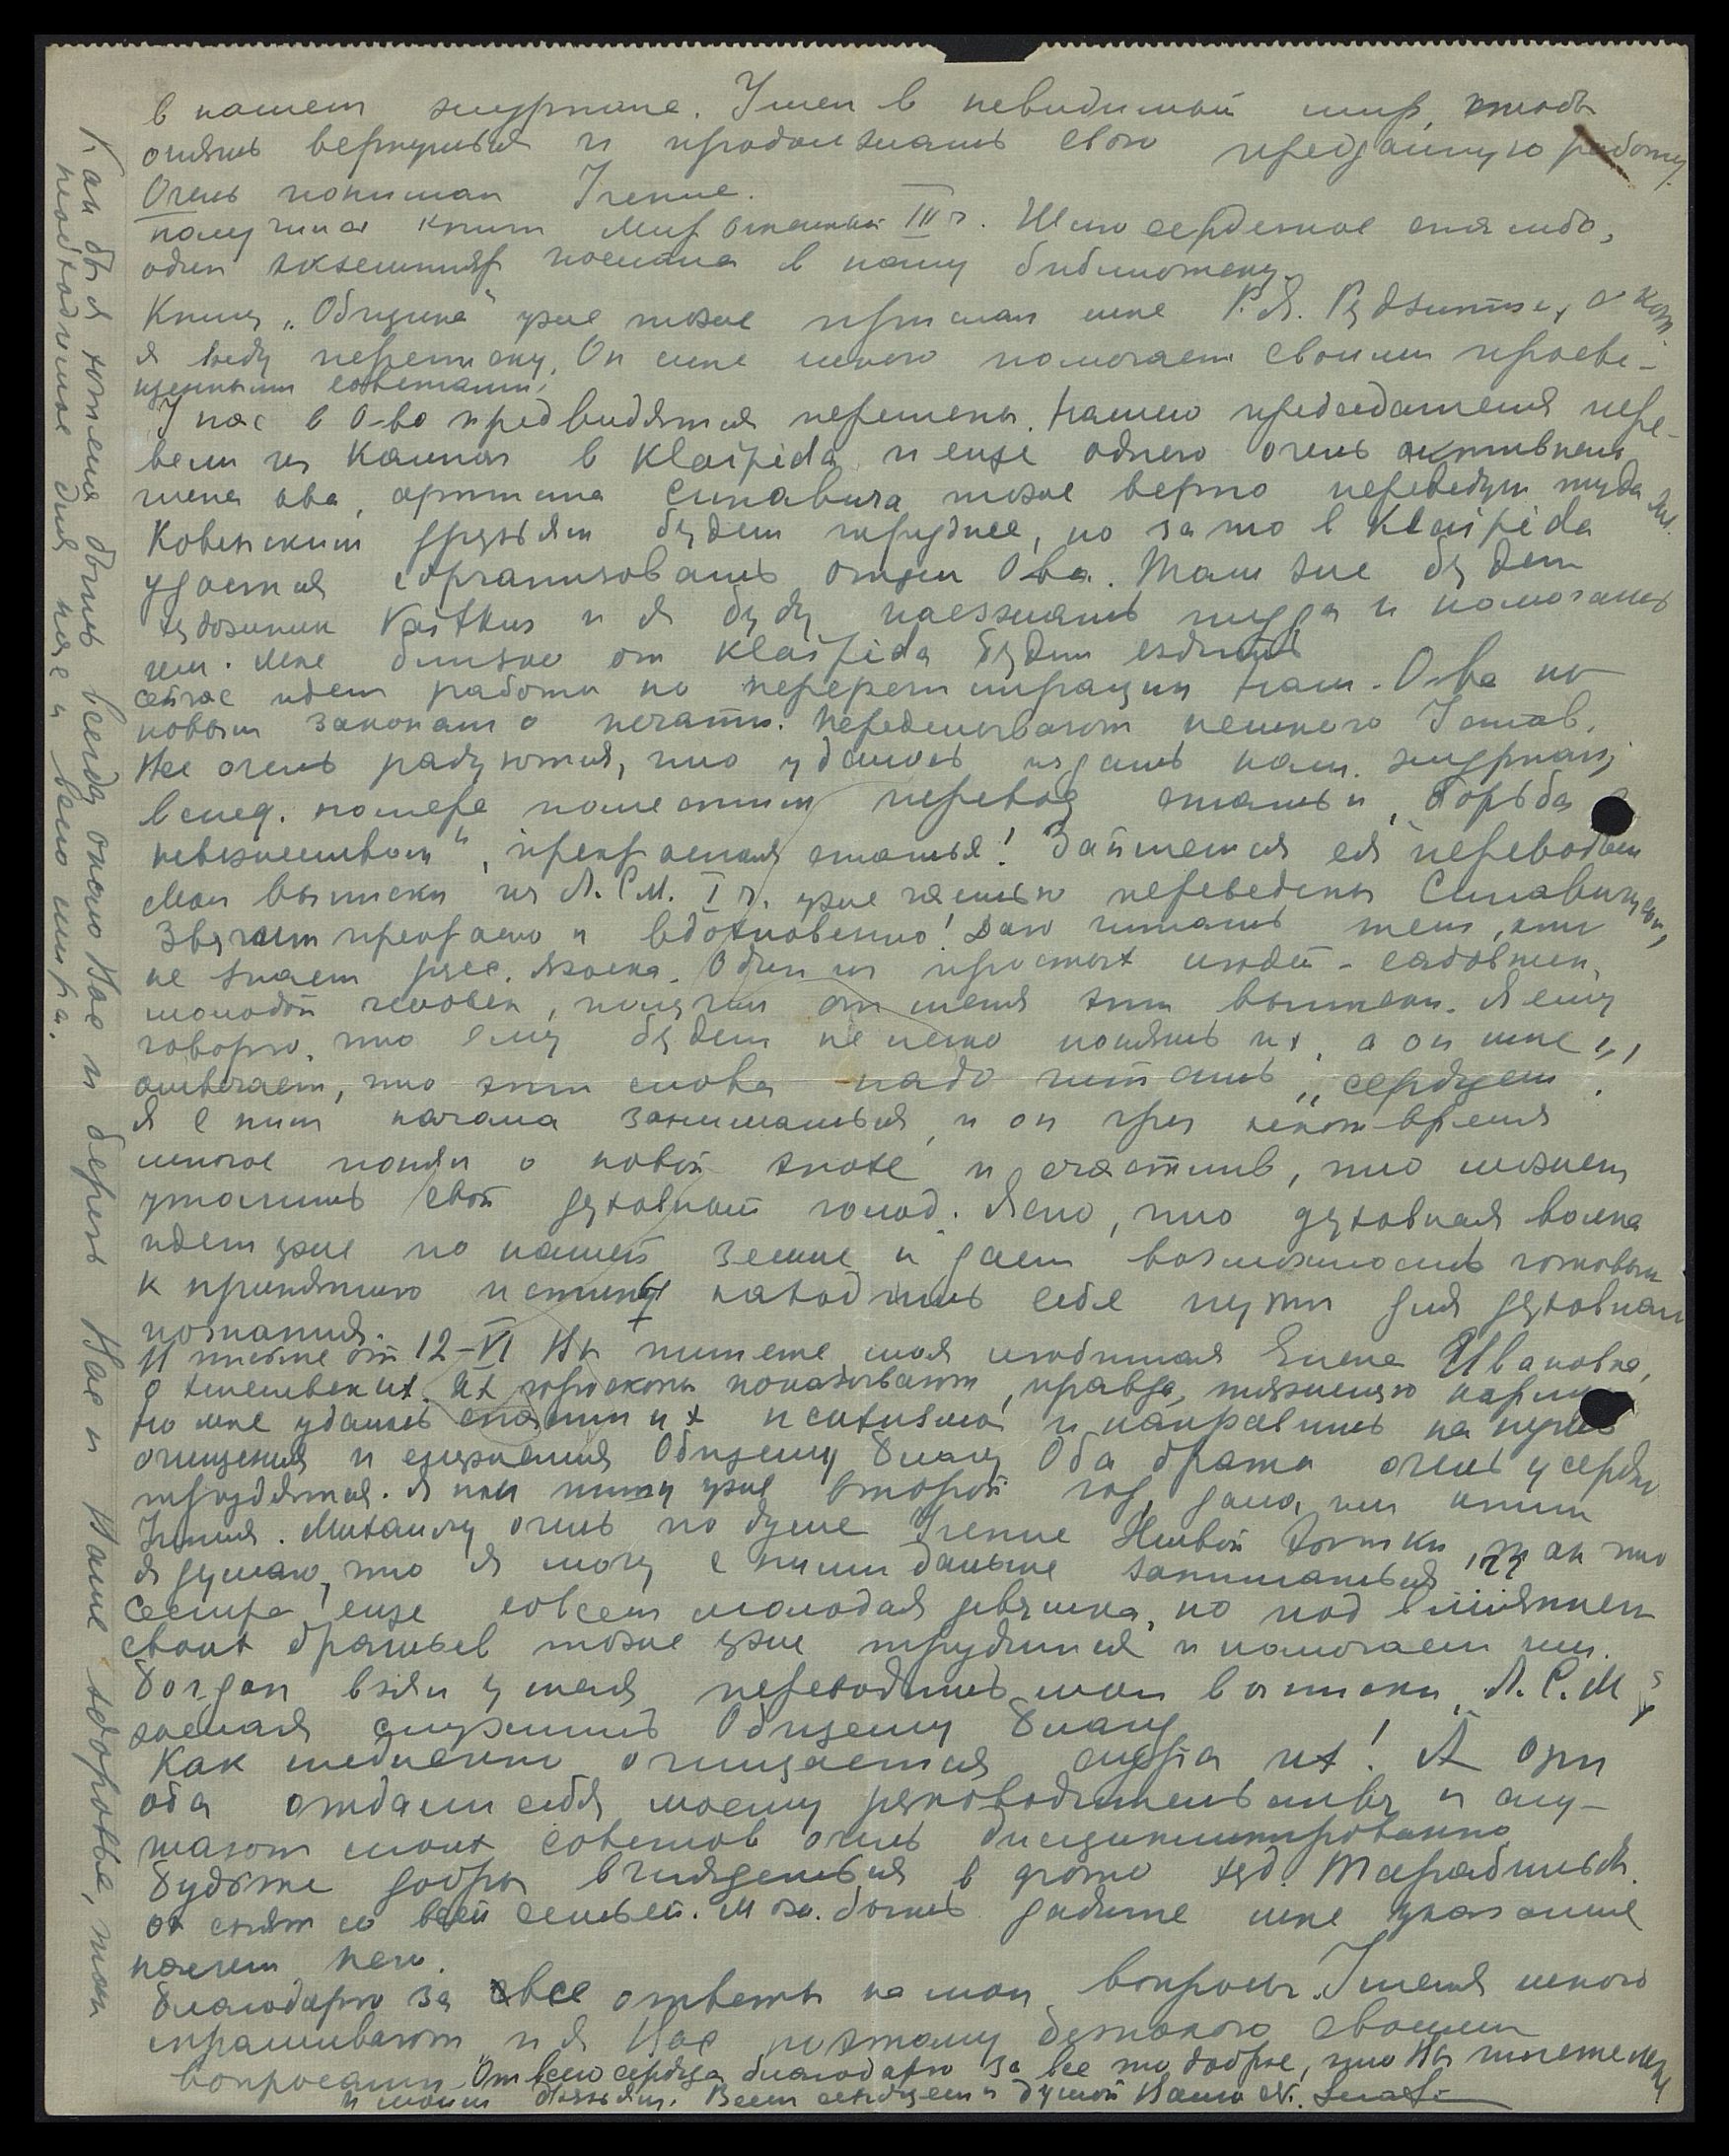 в нашем журнале. Ушел в невидимый мир, чтобы
опять вернуться и продолжать свою преданную работу.
Очень понимал Учение.
получила книги Мир Огненный III ч. Шлю сердечное спасибо,
один экземпляр послала в нашу библиотеку.
Книгу „Община“ уже тоже прислал мне Р. Я. Рудзитис, с кот.
я веду переписку. Он мне много помогает своими просве-
щенными советами.
У нас в О-ве предвидятся перемены. Нашего председателя пере-
вели из Каунаса в Klaipėda и еще одного очень активного
члена о-ва, артиста Синавича тоже верно переведут туда же.
Ковенским друзьям будет труднее, но за то в Klaipėda
удастся сорганизовать отдел О-ва. Там же будет
художник Vaitkus и я буду наезжать туда и помогать
им. Мне близко от Klaipėda будет ездить
сейчас идет работа по перерегистрации наш. О-ва по
новым законам о печати. Переделывают немного Устав.
Все очень радуются, что удалось издать наш. журнал;
в след. номере поместим перевод статьи „Борьба с
невежеством“, прекрасная статья! Займемся её переводом
Мои выписки из Л. С. М. I ч. уже частью переведены Синавичем,
Звучит прекрасно и вдохновенно! Даю читать тем, кто
не знает русс. языка. Один из простых людей – садовник,
молодой человек, получил от меня эти выписки. Я ему
говорю, что ему будет не легко понять их, а он мне
отвечает, что эти слова надо читать „сердцем“.
Я с ним начала заниматься, и он чрез некот. время
многое понял о новой эпохе и счастлив, что может
утолить свой духовный голод. Ясно, что духовная волна
идет уже по нашей земле и дает возможность готовым
к принятию истины находить себе пути для духовного
познания.
В письме от 12–VI Вы пишете моя любимая Елена Ивановна,
о Их гороскопы показывают, правда, тяжелую карму
но мне удалось спасти их и направить на путь
очищения и служения Общему Благу Оба брата очень усердно
трудятся. Я им пишу уже второй год, дала им книги
Учения. Михаилу очень по душе Учение Живой Этики, так что
я думаю, что я могу с ними дальше заниматься.
Сестра, еще совсем молодая девушка, но под влиянием
своих братьев тоже уже трудится и помогает им.
Богдан взял у меня переводить мои выписки Л. С. М.,
желая служить Общему Благу
Как медленно очищается аура их! А они
оба отдали себя моему руководительству и слу-
шают моих советов очень дисциплинированно
Будьте добры вглядеться в фото худ. Тарабильды.
он снят со всей семьей. Мож. быть дадите мне указание
насчет него.
Благодарю за все ответы на мои вопросы. У меня много
спрашивают и я Вас поэтому беспокою своими
вопросами. От всего сердца благодарю за все то доброе, что Вы пишете мне
и моим друзьям. Всем сердцем и душой Ваша
Как бы я хотела быть всегда около Вас и беречь Вас и Ваше здоровье, так
необходимое для нас и всего мира.